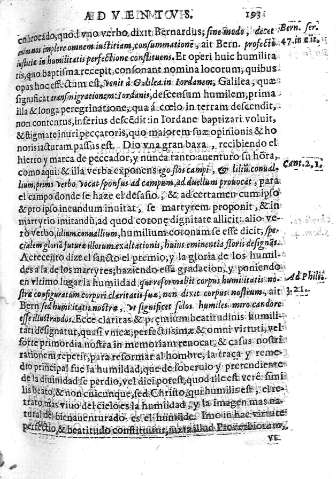 ADVENTVS. 193
en trocado, quod vno verbo, dixit Bernardus; sine modo, decet
omnem implere omnem iustitiam, consummatione, ait Bern. profectio
iustitiæ in humilitatis perfectione constituens. Et operi huic humilita
tis, quo baptisma recepit, consonant nomina locorum, quibus
opus hoc effectum est, venit à Galilea in Iordanem, Galilea, quæ
significat transmigrationem: Iordanis, descensum humilem, prima
illa & longa peregrinatione, qua à cœlo in terram descendit,
non contentus, inferius descēdit in Iordane baptizari voluit,
& stigmate inuri peccatoris, quo maiorem suæ opinionis & ho
noris iacturam passus est. Dio vna gran baxa, recibiendo el
hierro y marca de peccador, y nunca tanto auenturo su hõra,
como aqui: & illa verba exponens ego flos campi, & liliũ conual
lium, primo verbo vocat sponsus ad campum, ad duellum prouocat, para
el campo donde se haze el desafio, & ad certamen cum ipso
& pro ipso ineundum inuitat, se martyrem proponit, & in
martyris imitandũ, ad quod corone dignitate allicit: alio ve-
ro verbo, lilium conuallium, humilium coronam se esse dicit, spe-
cialem gloriã futuræ illorum exaltationis, huius eminentia floris designãs.
Acrecentro dize el sancto el premio, y la gloria de los humil
des a la de los martyres, haziendo essa gradacion, y poniendo
en vltimo lugar la humildad, quæ reformabit corpus humilitatis no-
stræ configuratum corpori claritatis suæ, non dixit corpus nostrum, ait
Bern. sed humilitatis nostræ, vt significet illos humiles miro candore
esse illustrados. Ecce claritas & premium beatitudinis humili
tati designatur, quasi vnicæ, perfectissimæ & omni virtuti, vel
forte primordia nostra in memoriam reuocat, & casus nostri
rationem repetit, para reformar al hombre, la traça y reme-
dio principal fue la humildad, que de soberuio y pretendiente
de la diuinidad se perdio, vel dici potest, quod ille est verè simi
lis beato, & non cuicunque, sed Christo, qui humilis est, el re-
trato mas viuo del cielo es la humildad, y la imagen mas na
tural del bienauenturado es el humilde. Imo in hac virtute
perfectio, & beatitudo constituitur, iuxta illud Prouerbiorum,
ve-
Bern. ser.
47. in cāt.
Cant. 2, 1.
Ad Philip.
3. 21.